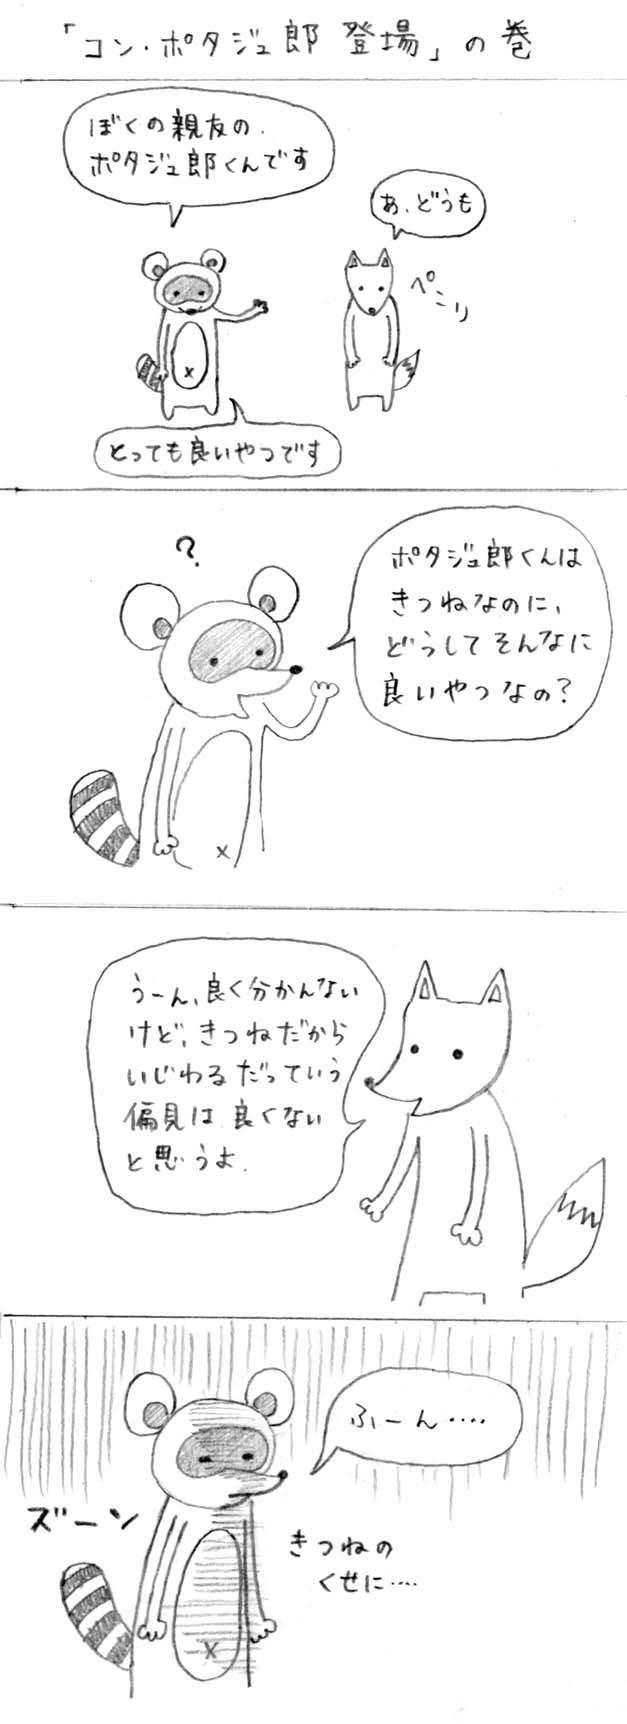 「コン・ポタジュ郎 登場」の巻
ぼくの親友の
ポタジュ郎くんです
あ、どうも
ペこり
とっても良いやつです
?
ポタジュ郎くんは
きつねなのに、
どうしてそんなに
良いやつなの?
うーん、良く分かんない
けど、きつねだから
いじわるだっていう
偏見は良くない
と思うよ.
ふーん‥‥
ズーン
きつねの
くせに‥‥